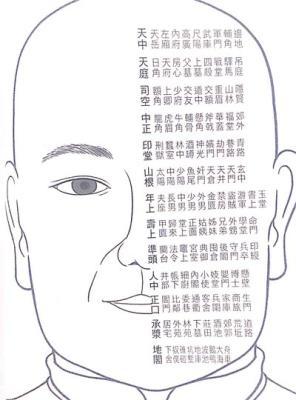 天中 天岳 左廂 內府 高廣 尺陽 武庫 軍門 輔角 邊地
天庭 日角 天府 房心 父墓 上墓 四殺 戰堂 驛馬 吊庭
司空 額角 上卿 少府 交友 道中 交額 重眉 山林 隱賢
中正 龍角 虎眉 牛角 輔骨 懸角 斧戟 華蓋 福堂 郊外
印堂 荊獄 蠶室 林中 酒罇 神光 嬪門 劫門 巷路 青路
山根 太陽 中陽 少陽 魚尾 奸門 天倉 天井 天門 玄中
年上 夫座 長男 中男 少男 外男 金匱 禁房 盜賊 遊軍 書上 玉堂
壽上 甲匱 歸來 堂上 正面 姑姨 姊妹 兄弟 外甥 學堂 命門
準頭 蘭台 法令 竈上 宮室 典御 園倉 後閣 守門 兵卒 印綬
人中 井部 帳下 細廚 內閣 小使 妓堂 嬰門 博士 懸壁
正口 閭門 比鄰 委巷 通衢 客舍 兵蘭 家庫 商旅 生門
承漿 居宅 外苑 林苑 下墓 莊田 酒池 郊郭 荒丘 道路
地閣 下舍 奴僕 碓磑 坑塹 地庫 波池 鵝鴨 大海 舟車